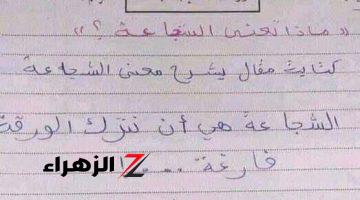 «ماذا تعني الشجاعة ؟»
كتابة مقال يشرح معنى الشجاعة
الشجاعة هي أن نترك الورقة
فارغة ....
الزهراء